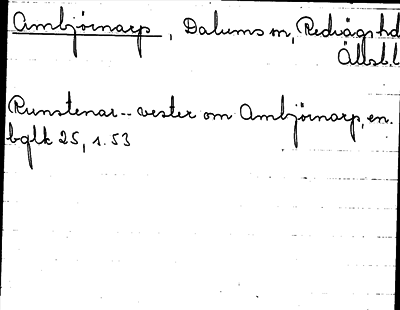 Ambjörnarp, Dalums sn, Redvägs hd
Älvsb.l
Runstenar -- vester om Ambjörnarp, en.
bglk 25, s. 53